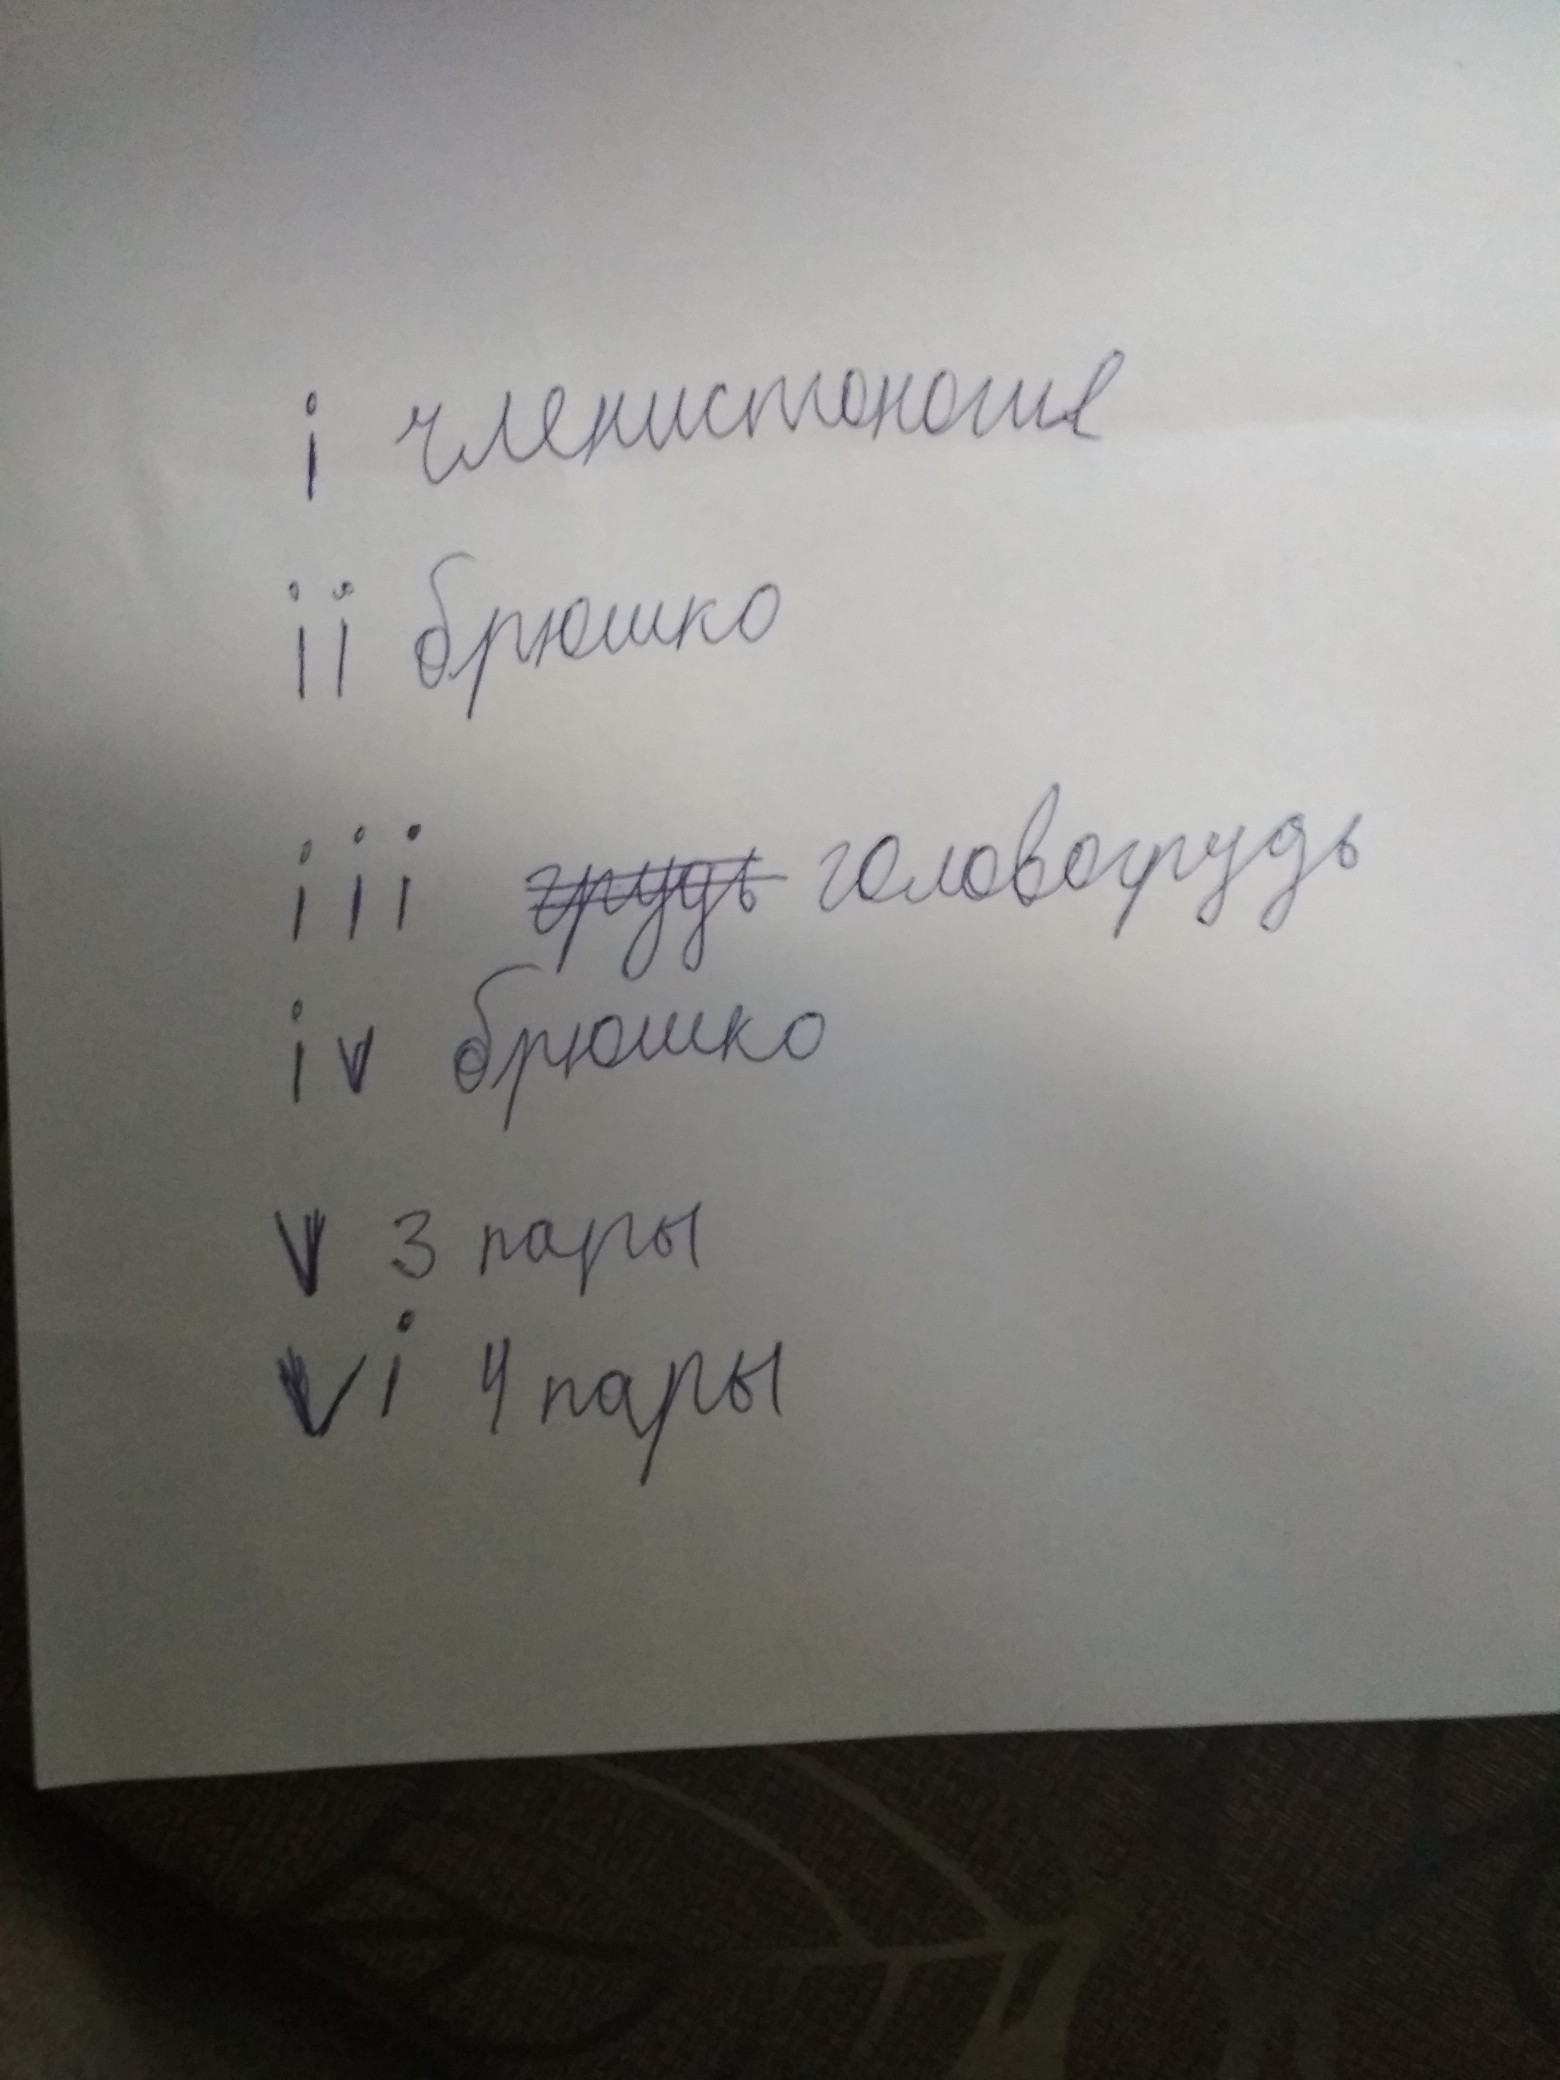 i членистоногие
ii брюшко
iii грудь головогрудь
iv брюшко
v 3 пары
vi 4 пары